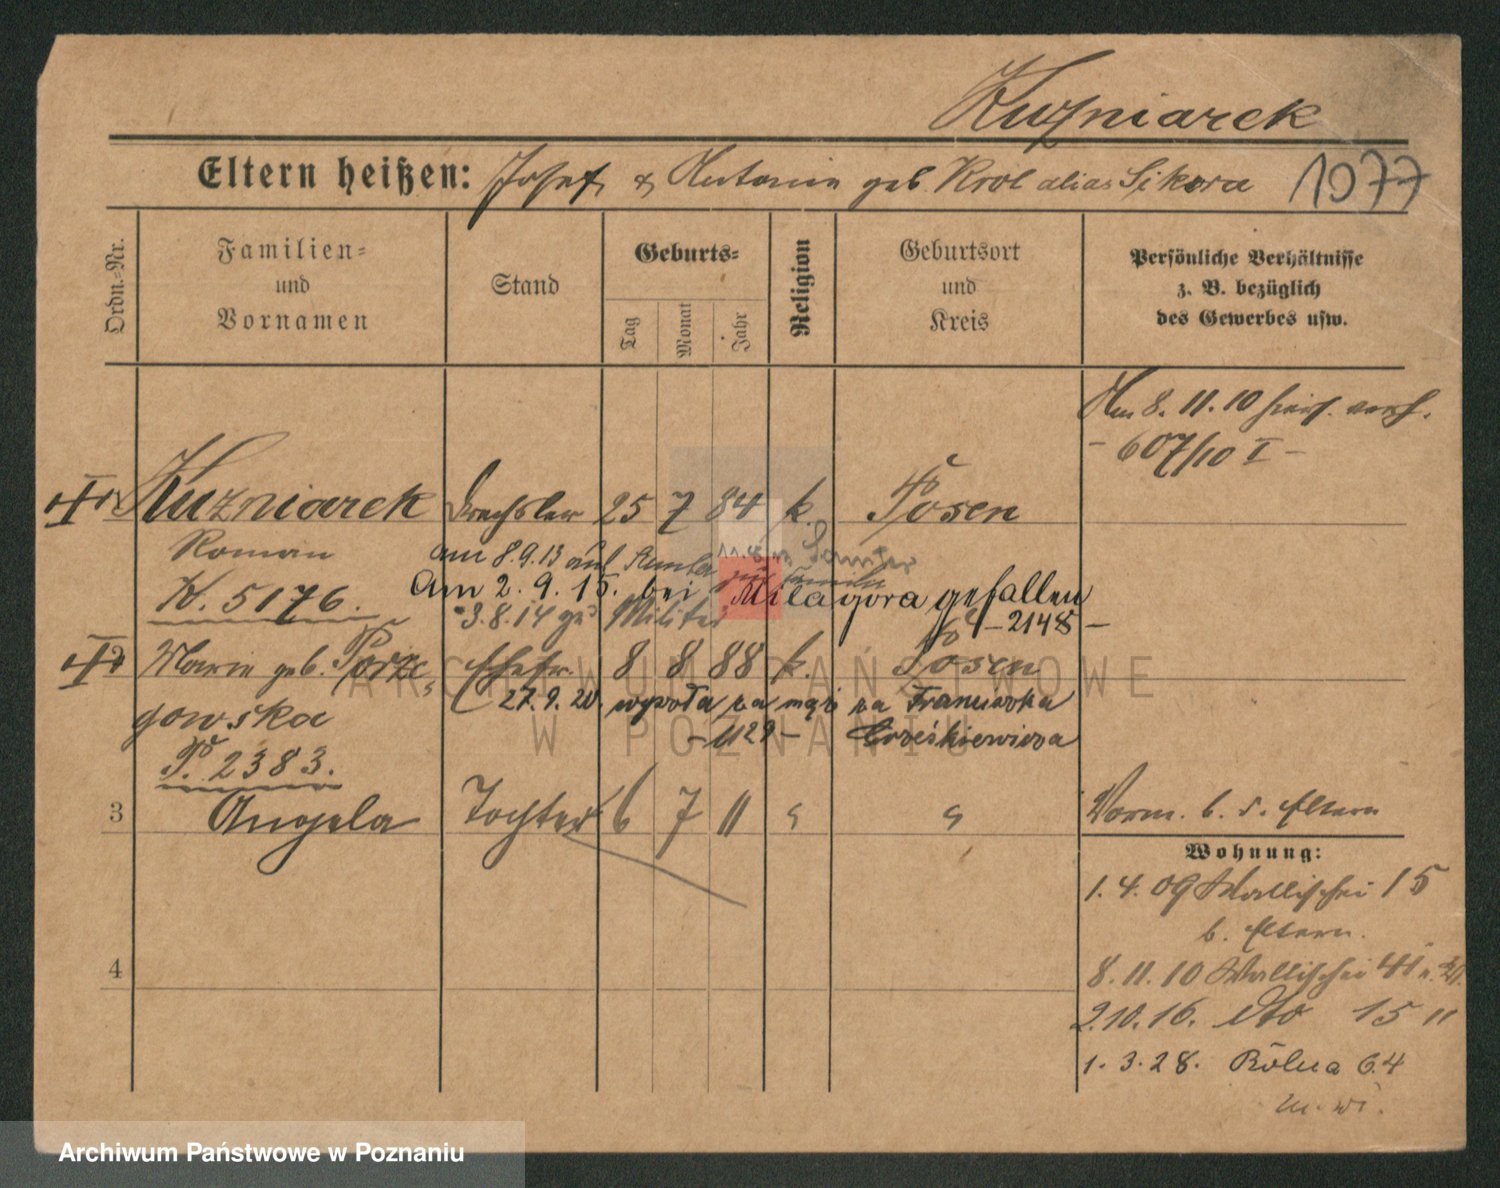 Kuźniarek
Eltern heißen: Josef & Antonie geb. Krol alias Sikora 1077
Ordn.-Nr.
Familien=
und
Vornamen
Stand
Geburts=
Tag
Monat
Jahr
Religion
Geburtsort
und
Kreis
Persönliche Verhältnisse
z. B. bezüglich
des Gewerbes usw.
Am 8. 11. 10 hier verh.
- 607/10 I -
Kuzniarek Drechsler 25 7 84 k. Posen
Roman am 8.9.13 auf
K. 5176. Am 2. 9. 15. bei Milagora gefallen
3.8.14 zu Militär - 2148 -
2 Marie geb. Porze Ehefr. 8 8 88 k. Posen
gowska 27. 9. 20. wyszła za mąż za Franciszka
- 1129 -
P. 2383.
3 Angela Tochter 6 7 11
Vorm. b. d. Eltern
Wohnung:
1. 4. 09 Wallischei 15
b. Eltern.
8. 11. 10 Wallischei 41
2. 10. 16. dto 15 II
1. 3. 28. Rólna 64
4
ARCHIWUM PAŃSTWOWE
W POZNANIU
Archiwum Państwowe w Poznaniu